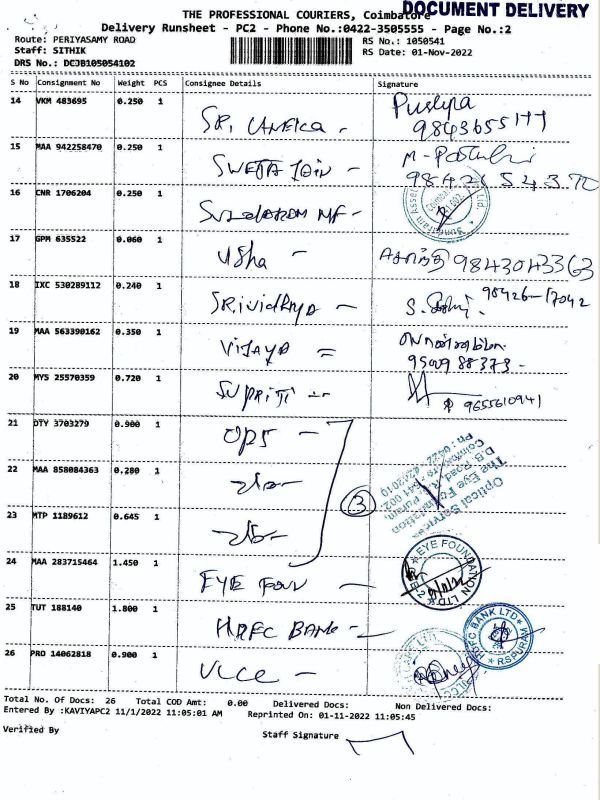 DOCUMENT DELIVERY
THE PROFESSIONAL COURIERS, Coimbatore
Delivery Runsheet - PC2 - Phone No.:0422-3505555 - Page No.:2
Route: PERIYASAMY ROAD
RS No.: 1050541
Staff: SITHIK
RS Date: 01-Nov-2022
DRS No.: DCJB105054102
S No Consignment No Weight PCS Consignee Details Signature
14 VKM 483695 0.250 1
9843655177
15 MAA 942258470 0.250 1 SWETA JAIN -
16 CNR 1706204 0.250 1 SUNDARAM MF -
17 GPM 635522 0.060 1 Usha - 9843043363
18 IXC 530289112 0.240 1 SRIVIDHYA - 98426-17042
19 MAA 563390162 0.350 1 VIJAYA =
20 MYS 25570359 0.720 1 SUPRITI -- 9655610941
21 DTY 3703279 0.900 1 OPS -
22 MAA 858084363 0.280 1
3
23 MTP 1189612 0.645 1
24 MAA 283715464 1.450 1 EYE FOUN - EYE FOUNDATION LTD
25 TUT 188140 1.800 1 HDFC BANK - HDFC BANK LTD RSPURAM
26 PRO 14062818 0.900 1 VLCC -
Total No. Of Docs: 26 Total COD Amt: 0.00 Delivered Docs: Non Delivered Docs:
Entered By :KAVIYAPC2 11/1/2022 11:05:01 AM Reprinted On: 01-11-2022 11:05:45
Verified By Staff Signature